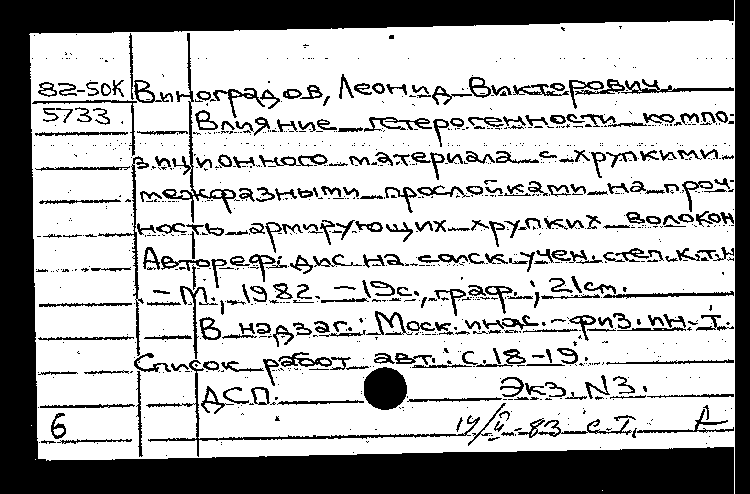 82-50К Виноградов, Леонид Викторович.
5733 Влияние гетерогенности компо-
зиционного материала с хрупкими
межфазными прослойками на проч-
ность армирующих хрупких волокон
Автореф. дис. на соиск. учен. степ. к.т.н
- М., 1982. - 19с., граф.; 21см.
В надзаг.: Моск. инж.-физ. ин-т.
Список работ авт.: с. 18-19.
ДСП. Экз. N3.
6 14/II-83 с.т. А